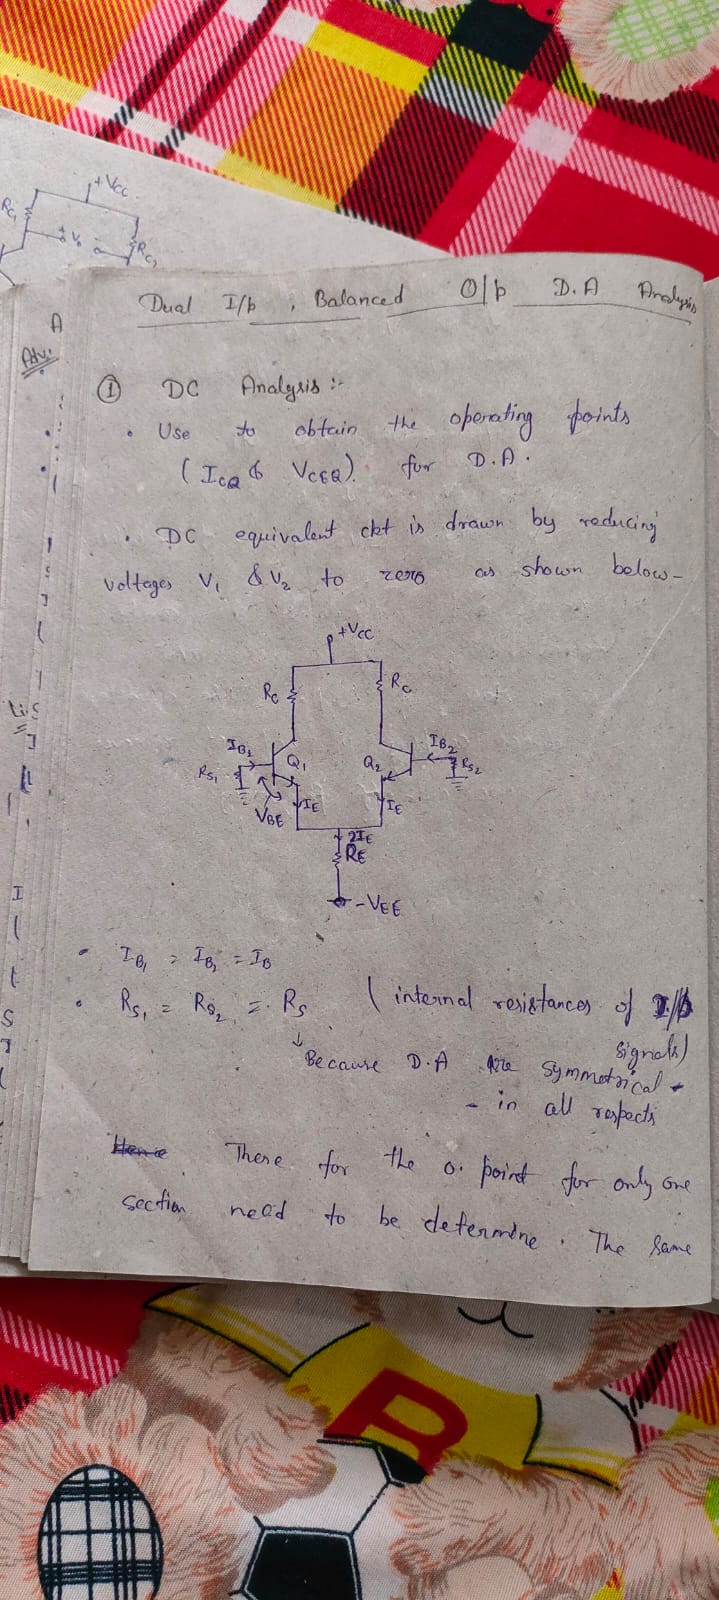 +Vcc
Rc1
Vo
Rc2
A
Adv:
Dual I/p , Balanced O/p D.A Analysis
① DC Analysis :-
• Use to obtain the operating points
( ICQ & VCEQ). for D.A.
• DC equivalent ckt is drawn by reducing
voltages V1 & V2 to zero as shown below-
+Vcc
Rc Rc
IB1 IB2
RS1 Q1 Q2 RS2
VBE IE IE
2IE
RE
-VEE
• IB1 = IB2 = IB
• RS1 = RS2 = RS ( internal resistances of I/p
signals)
Because D.A are symmetrical -
- in all respects
There for the o. point for only one
section need to be determine . The same
B